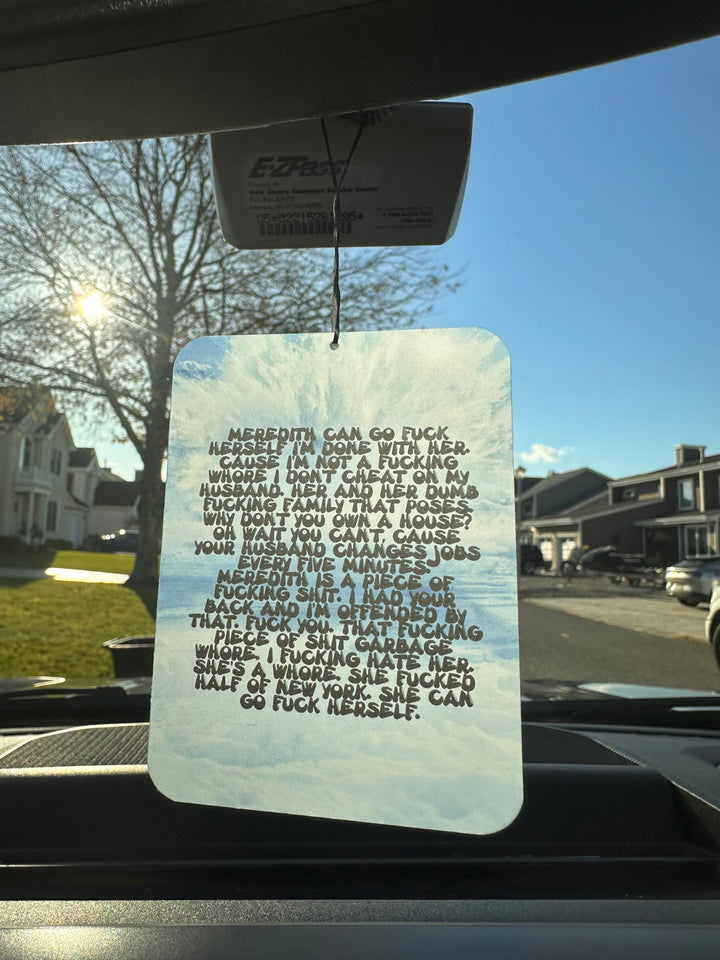 E-ZPass
Property of:
New Jersey Customer Service Center
MEREDITH CAN GO FUCK
HERSELF I'M DONE WITH HER.
CAUSE I'M NOT A FUCKING
WHORE I DON'T CHEAT ON MY
HUSBAND. HER AND HER DUMB
FUCKING FAMILY THAT POSES.
WHY DON'T YOU OWN A HOUSE?
OH WAIT YOU CAN'T, CAUSE
YOUR HUSBAND CHANGES JOBS
EVERY FIVE MINUTES.
MEREDITH IS A PIECE OF
FUCKING SHIT. I HAD YOUR
BACK AND I'M OFFENDED BY
THAT. FUCK YOU. THAT FUCKING
PIECE OF SHIT GARBAGE
WHORE. I FUCKING HATE HER.
SHE'S A WHORE. SHE FUCKED
HALF OF NEW YORK. SHE CAN
GO FUCK HERSELF.